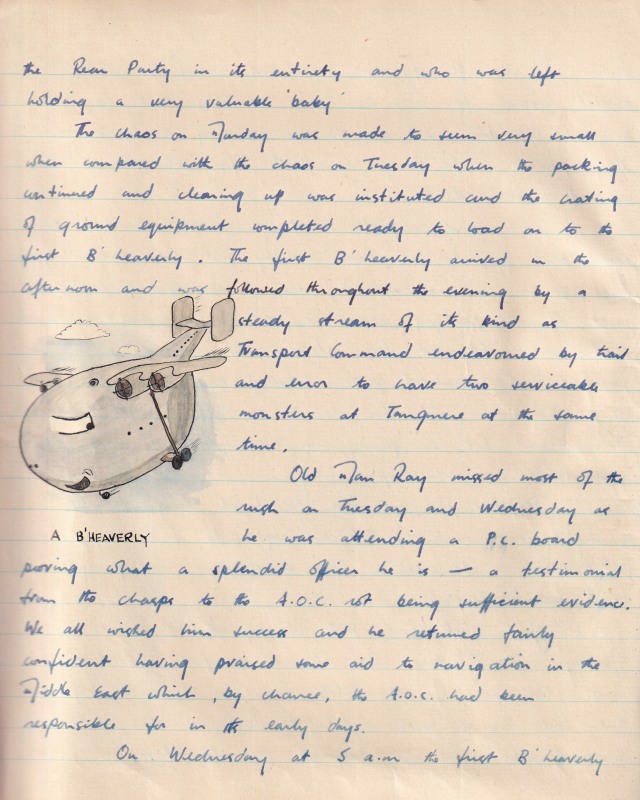 the Rear Party in its entirety and who was left
holding a very valuable 'baby'
The chaos on Monday was made to seem very small
when compared with the chaos on Tuesday when the packing
continued and clearing up was instituted and the crating
of ground equipment completed ready to load on to the
first B'heaverly. The first B'heaverly arrived in the
afternoon and was followed throughout the evening by a
steady stream of its kind as
Transport Command endeavoured by trial
and error to have two serviceable
monsters at Tangmere at the same
time.
Old Man Ray missed most of the
rush on Tuesday and Wednesday as
he was attending a P.C. board
A B'HEAVERLY
proving what a splendid officer he is — a testimonial
from the chaps to the A.O.C. not being sufficient evidence.
We all wished him success and he returned fairly
confident having praised some aid to navigation in the
Middle East which, by chance, the A.O.C. had been
responsible for in its early days.
On Wednesday at 5 a.m the first B'heaverly